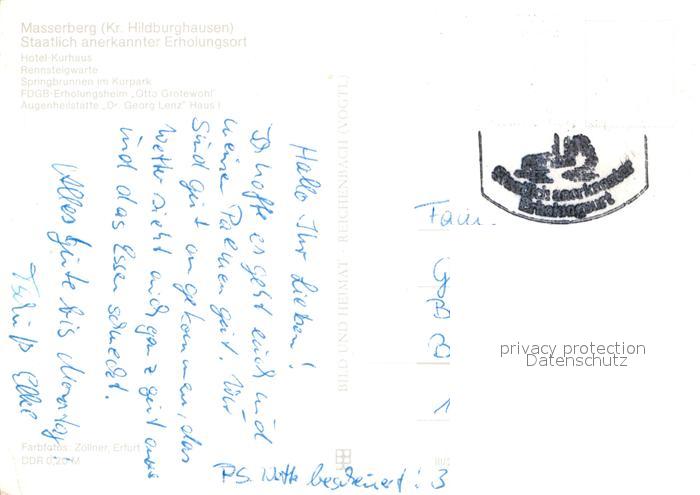 Masserberg (Kr. Hildburghausen)
Staatlich anerkannter Erholungsort
Hotel-Kurhaus
Rennsteigwarte
Springbrunnen im Kurpark
FDGB-Erholungsheim „Otto Grotewohl"
Augenheilstätte „Dr. Georg Lenz" Haus I
Hallo Ihr Lieben!
Ich hoffe es geht euch und
meinen Palmen gut. Wir
sind gut angekommen, das
Wetter sieht auch ganz gut aus
und das Essen schmeckt.
Alles Gute bis Montag
Tschüß Elke
P.S. bitte
Farbfotos: Zöllner, Erfurt
DDR 0,20 M
BILD UND HEIMAT · REICHENBACH (VOGTL)
III/
Staatlich anerkannter
Erholungsort
Fam.
privacy protection
Datenschutz